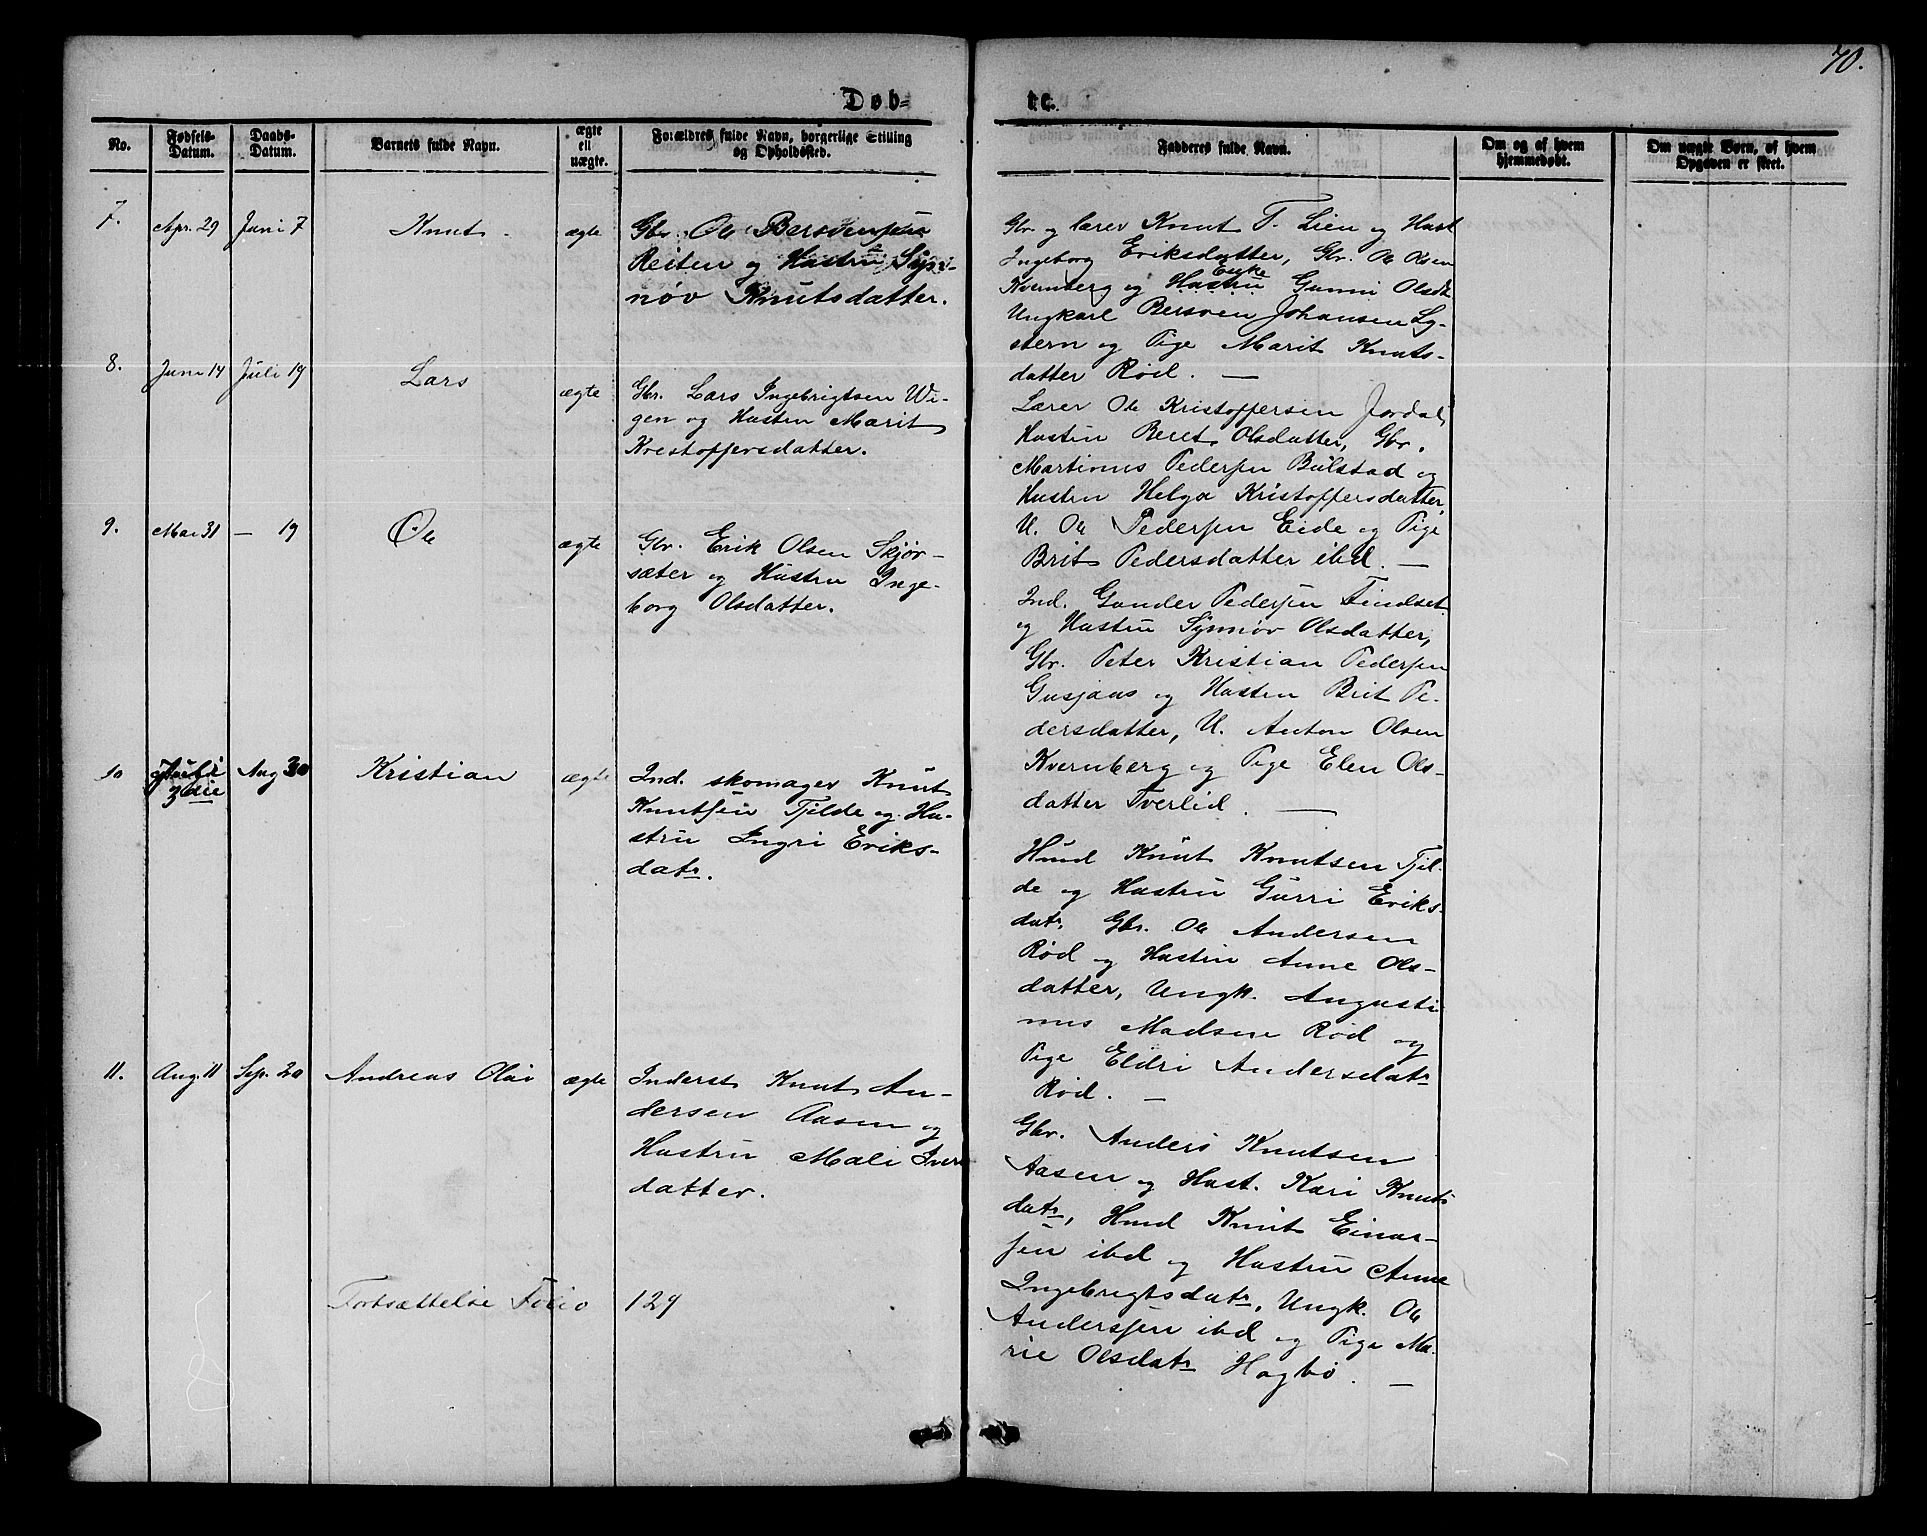 70.
Døb=
te.
No.
Fødsels-
Datum.
Daabs-
Datum.
Barnets fulde Navn.
ægte
ell
uægte.
Forældres fulde Navn, borgerlige Stilling
og Opholdssted.
Fadderes fulde Navn.
Om og af hvem
hjemmedøbt.
Om uægte Børn, af hvem
Opgaven er skeet.
7.
Apr. 29
Juni 7
Knut
ægte
Gbr. Ole Bersvensen
Reiten og Hustru Syn-
növ Knutsdatter.
Gbr. og lærer Knut T. Lien og Hust
Ingeborg Eriksdatter, Gbr. Ole Olsen
Kvernberg og Hustru Enke Gunni Olsdt
Ungkarl Bersven Johansen Ly-
stern og Pige Marit Knuts-
datter Röd. —
8.
Juni 14
Juli 19
Lars
ægte
Gbr. Lars Ingebrigtsen Wi-
gen og Hustru Marit
Krestoffersdatter.
Lærer Ole Kristoffersen Jordal,
Hustru Beret Olsdatter, Gbr.
Martinus Pedersen Bölstad og
Hustru Helga Kristoffersdatter,
U. Ole Pedersen Eide og Pige
Brit Pedersdatter ibd. —
9.
Mai 31
— 19
Ole
ægte
Gbr. Erik Olsen Skjør-
sæter og Hustru Inge-
borg Olsdatter.
Ind. Gunder Pedersen Findset
og Hustru Synnöv Olsdatter,
Gbr. Peter Kristian Pedersen
Gusjaas og Hustru Brit Pe-
dersdatter, U. Anton Olsen
Kvernberg og Pige Elen Ols-
datter Tverlid. —
10
Juli
Aug 30
Kristian
ægte
Ind. skomager Knut
Knutsen Tjelde og Hu-
stru Ingri Eriks-
datr.
Hmd Knut Knutsen Tjel-
de og Hustru Gurri Eriks-
datr. Gbr. Ole Andersen
Röd og Hustru Anne Ols-
datter, Ungk. Augusti
nus Madsen Röd og
Pige Eldri Andersdatr
Röd. —
11.
Aug. 11
Sep. 20
Andreas Olai
ægte
Inderst Knut An-
dersen Aasen og
Hustru Mali Iver
datter.
Gbr. Anders Knutsen
Aasen og Hust. Kari Knuts
datr, Hmd Knut Einar-
sen ibd og Hustru Anne
Ingebrigtsdatr, Ungk. Ole
Andersen ibd og Pige Ma-
rie Olsdatr Hagbö. —
Fortsættelse Folio 129